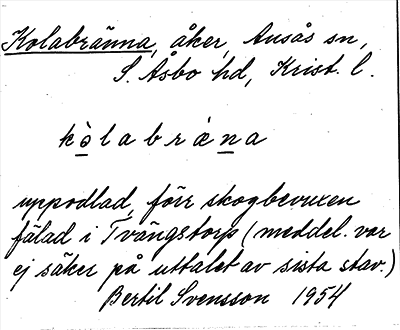 Kolabränna, åker, Ausås sn,
S. Åsbo hd, Krist. l.
kò̲labrǽn̲a
uppodlad, förr skogbevuxen
fälad i Tvängstorp (meddel. var
ej säker på uttalet av sista stav.)
Bertil Svensson 1954